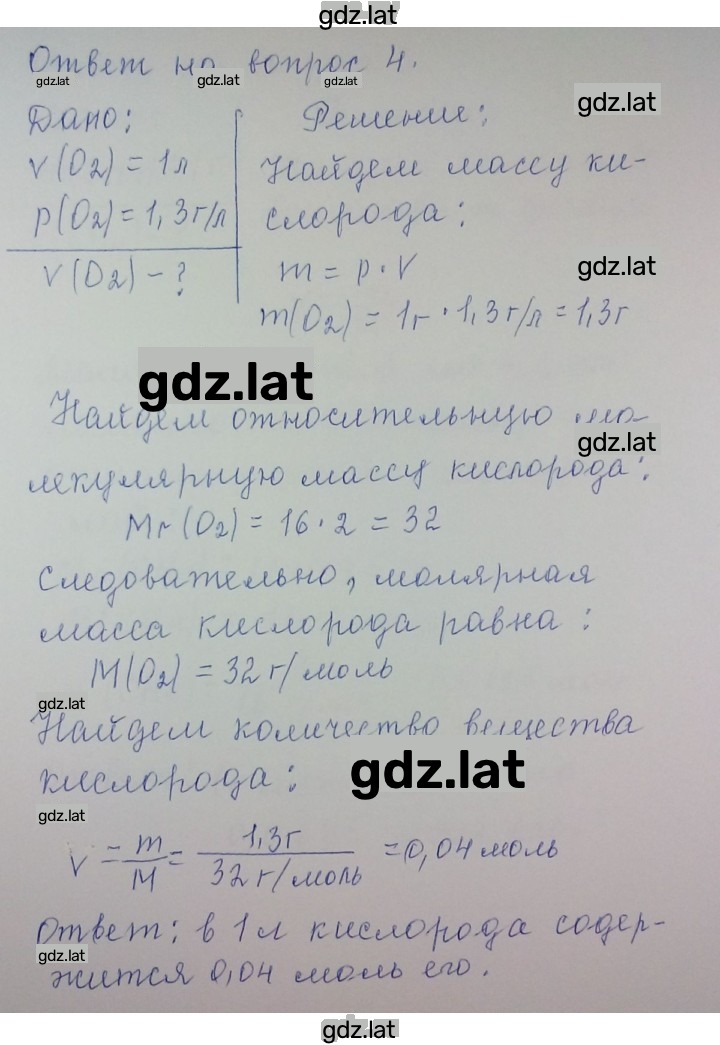 gdz.lat
Ответ на вопрос 4.
gdz.lat gdz.lat gdz.lat
gdz.lat
Дано:
V(O2) = 1л
p(O2) = 1,3г/л
V(O2) - ?
Решение:
Найдем массу ки-
слорода:
m = p · V
gdz.lat
m(O2) = 1г · 1,3г/л = 1,3г
gdz.lat
Найдем относительную мо-
gdz.lat
лекулярную массу кислорода:
Mr(O2) = 16 · 2 = 32
Следовательно, молярная
масса кислорода равна:
M(O2) = 32 г/моль
gdz.lat
Найдем количество вещества
кислорода:
gdz.lat
gdz.lat
V = m/M = 1,3г/32 г/моль = 0,04 моль
Ответ: в 1 л кислорода содер-
gdz.lat
жится 0,04 моль его.
gdz.lat